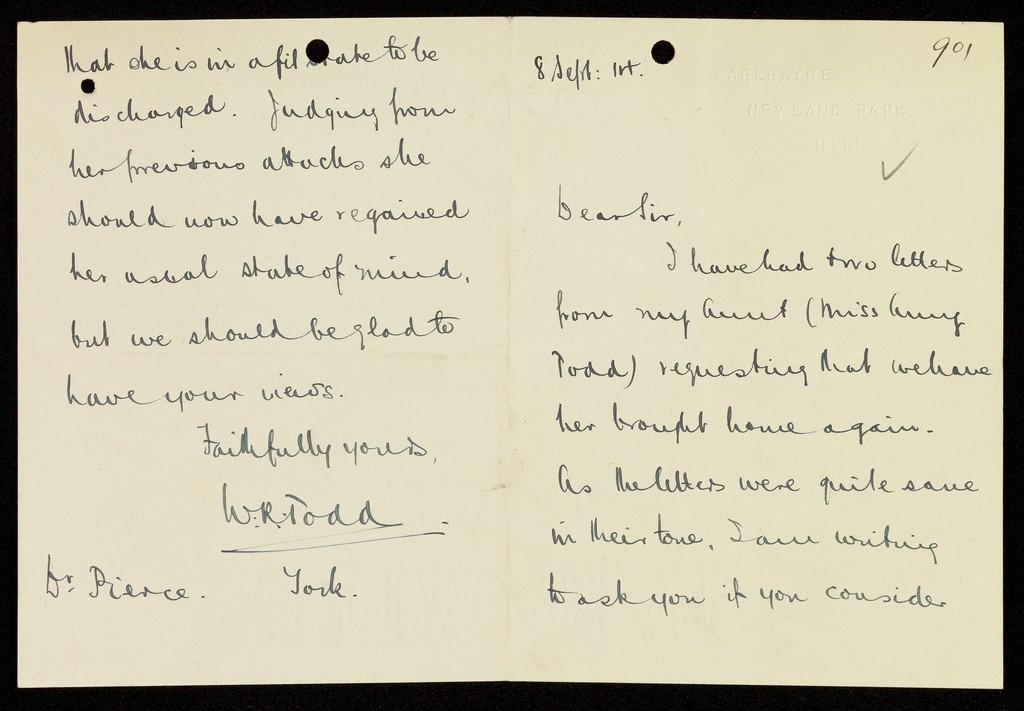 901
8 Sept: 14.
CARLRAYNE,
NEWLAND PARK,
HULL.
Dear Sir,
I have had two letters
from my Aunt (Miss Amy
Todd) requesting that we have
her brought home again.
As the letters were quite sane
in their tone, I am writing
to ask you if you consider
that she is in a fit state to be
discharged. Judging from
her previous attacks she
should now have regained
her usual state of mind,
but we should be glad to
have your views.
Faithfully yours,
W.R. Todd
Dr. Pierce. York.